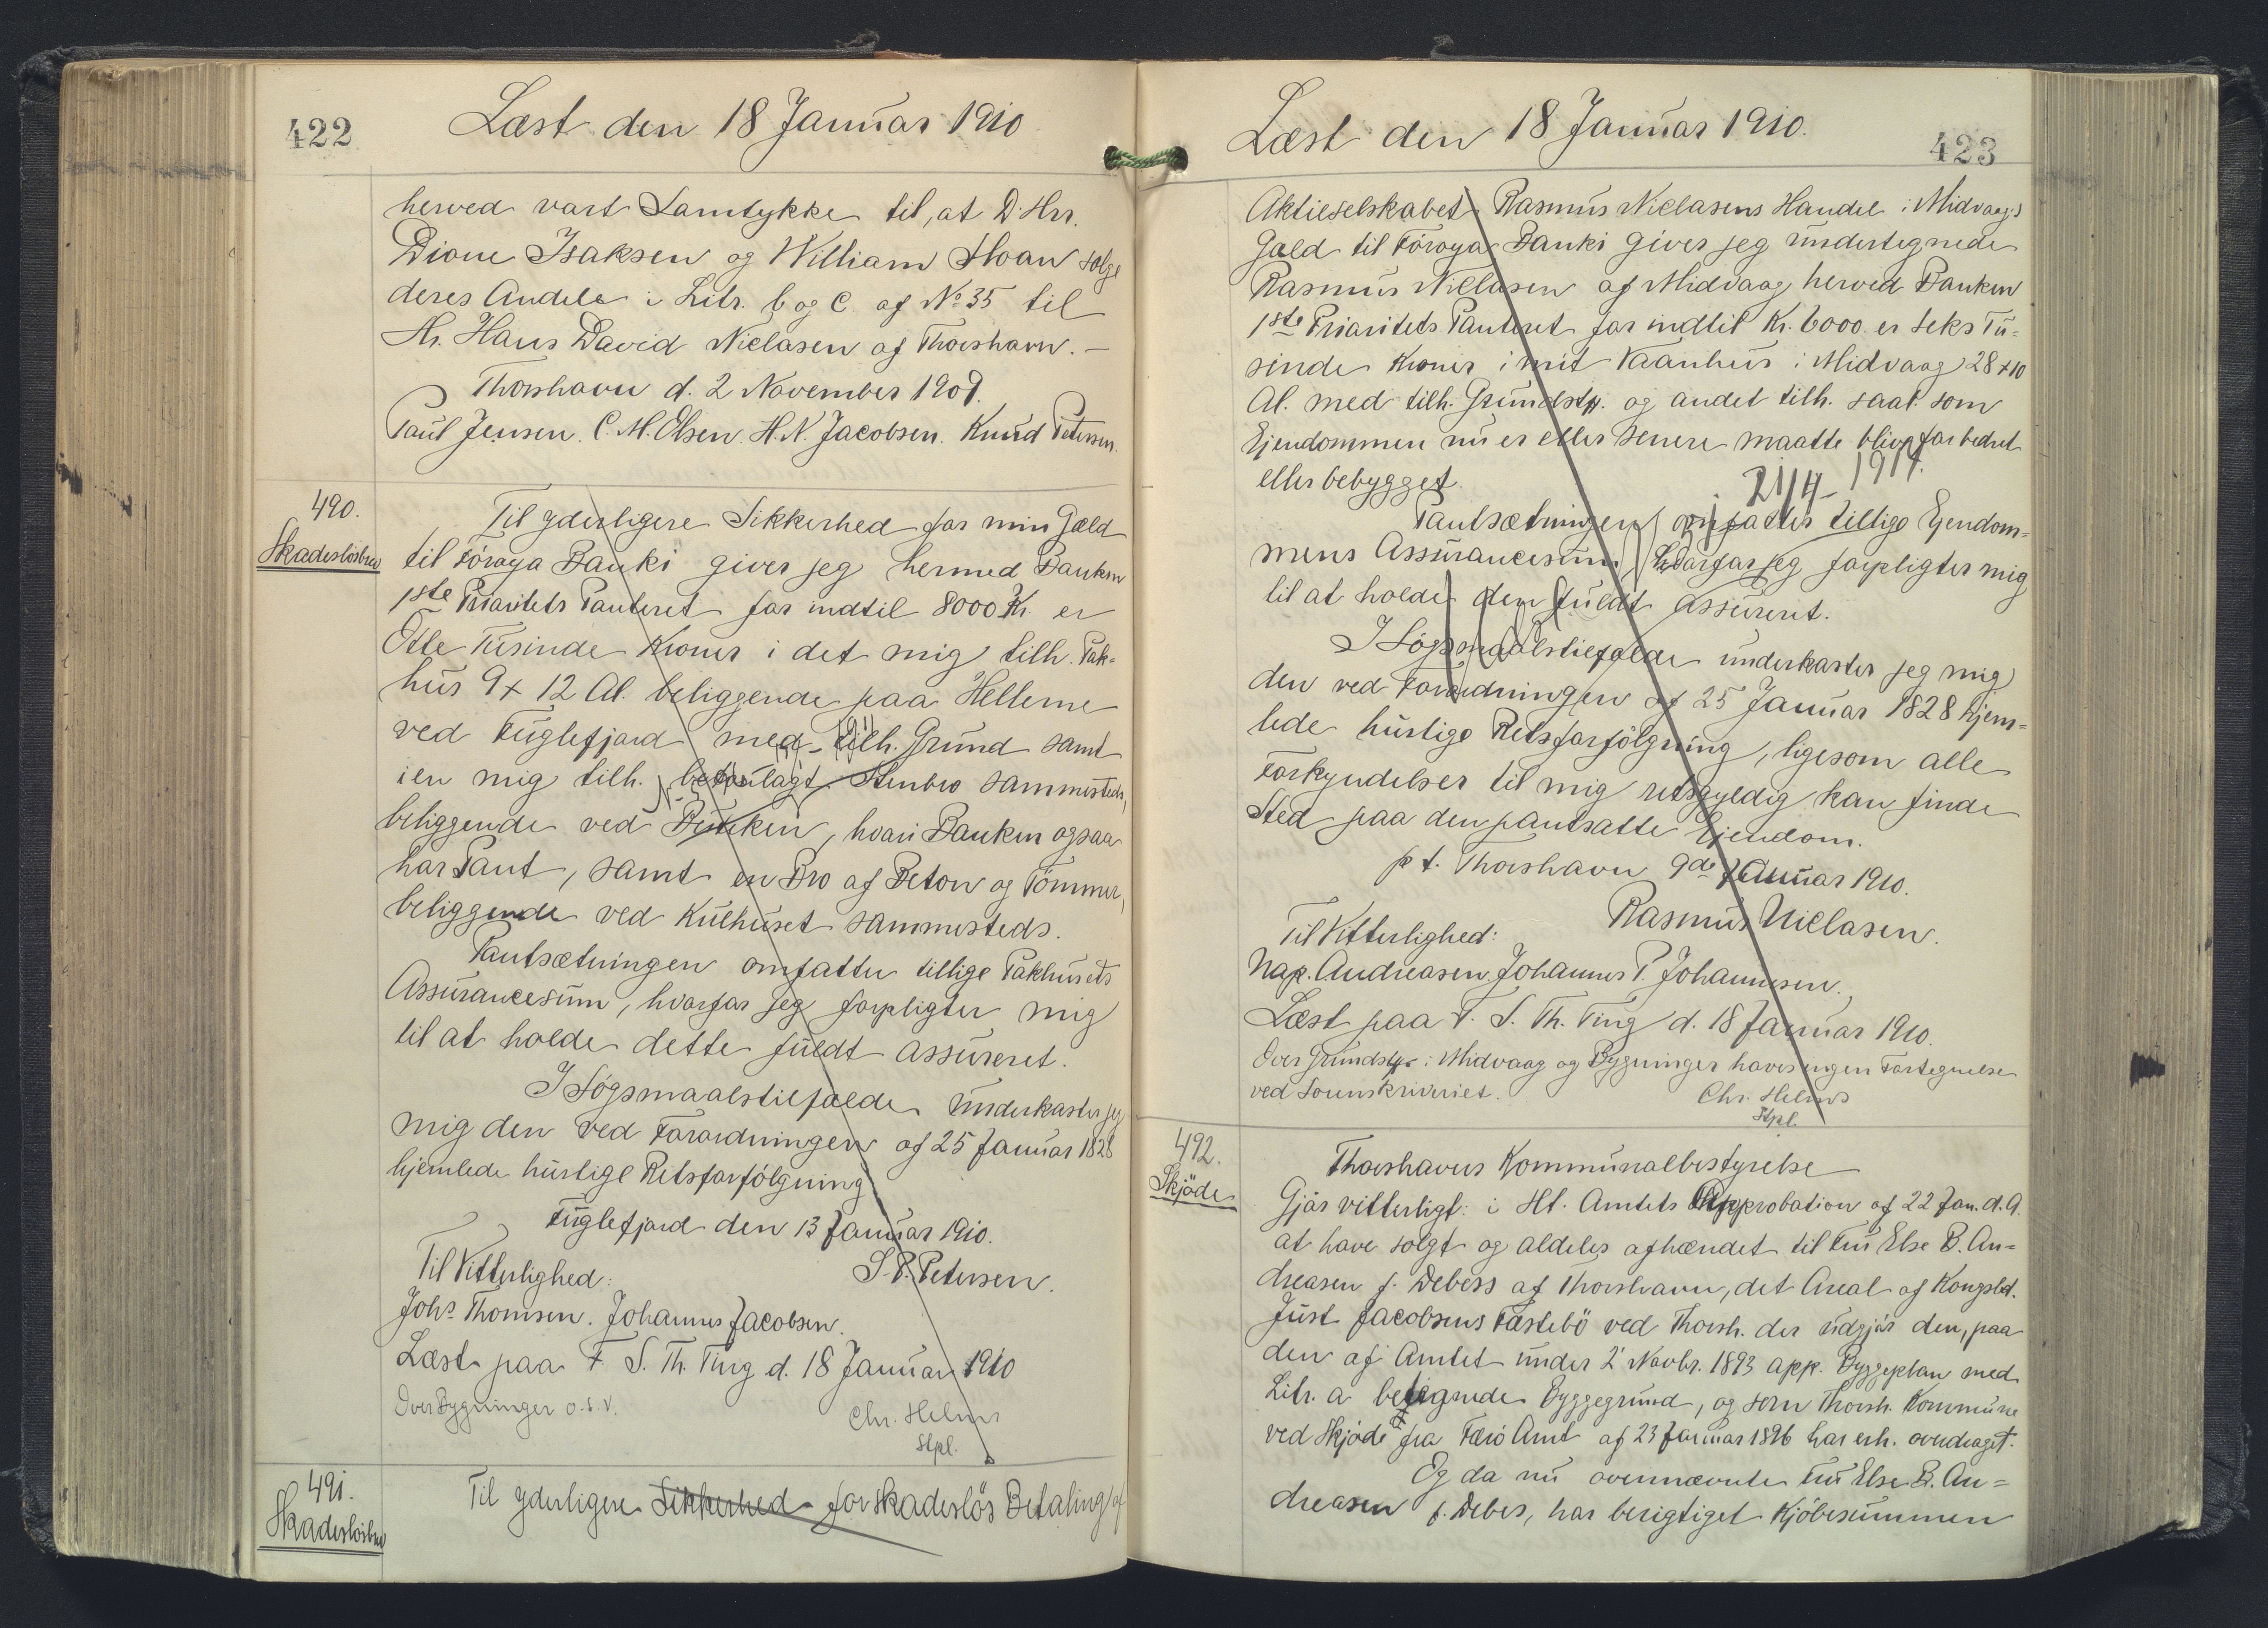 422
Læst den 18 Januar 1910
herved vort Samtykke til, at D. Hrr.
Dione Isaksen og William Hoan sælge
deres Andele i Litr. b og c. af No 35 til
Hr. Hans David Niclasen af Thorshavn. –
Thorshavn d. 2 November 1909.
Paul Jensen. C. M. Olsen. H. N. Jacobsen. Knud Petersen.
490.
Skadeslösbrev
Til yderligere Sikkerhed for min Gæld
til Föroya Banki giver jeg hermed Banken
1ste Prioritets Panteret for indtil 8000 Kr. er
Otte Tusinde Kroner i det mig tilh. Pak=
hus 9 x 12 Al. beliggende paa Hellerne
ved Fuglefjord med tilh. Grund samt
i en mig tilh. Stenbro sammesteds,
beliggende ved , hvori Banken ogsaa
har Pant, samt en Bro af Beton og Tömmer,
beliggende ved Kulhuset sammesteds.
Pantsætningen omfatter tillige Pakhusets
Assurancesum, hvorfor jeg forpligter mig
til at holde dette fuldt assureret.
I Sögsmaalstilfælde underkaster jeg
mig den ved Forordningen af 25 Januar 1828
hjemlede hurtige Retsforfölgning
Fuglefjord den 13 Januar 1910.
Til Vitterlighed:
S. P. Petersen.
Johs Thomsen. Johannes Jacobsen.
Læst paa F. S. Th. Ting d. 18 Januar 1910
Over Bygninger o.s.v.
Chr. Helms
Stpl.
491.
Skadeslösbrev
Til yderligere Sikkerhed for skadeslös Betaling af
Læst den 18 Januar 1910.
423
Aktieselskabet Rasmus Niclasens Handel i Midvaag's
Gæld til Föroya Banki giver jeg undertegnede
Rasmus Niclasen af Midvaag herved Banken
1ste Prioritets Panteret for indtil Kr. 6000. er Seks Tu=
sinde Kroner i mit Vaanhus i Midvaag 28 x 10
Al. med tilh. Grundst. og andet tilh. saal. som
Ejendommen nu er eller senere maatte blive forbedret
eller bebygget.
21/4 – 1914.
Pantsætningen omfatter tillige Ejendom=
mens Assurancesum, hvorfor jeg forpligter mig
til at holde den fuldt assureret.
I Sögsmaalstilfælde underkaster jeg mig
den ved Forordningen af 25 Januar 1828 hjem=
lede hurtige Retsforfölgning, ligesom alle
Forkyndelser til mig retsgyldig kan finde
Sted paa den pantsatte Ejendom.
p t. Thorshavn 9de Januar 1910.
Rasmus Niclasen.
Til Vitterlighed:
Nap. Andreasen. Johannes P. Johannesen.
Læst paa F. S. Th. Ting d. 18 Januar 1910.
Over Grundst. i Midvaag og Bygninger haves ingen Fortegnelse
ved Sorenskriveriet.
Chr. Helms
Stpl.
492.
Skjöde
Thorshavns Kommunalbestyrelse
Gjör vitterligt: i Hl. Amtets Approbation af 22 Jan. d. A.
at have solgt og aldeles afhændet til Fru Else B. An=
dreasen f. Debess af Thorshavn, det Areal af Kongsld.
Just Jacobsens Fæstebö ved Thorsh. der udgjör den, paa
den af Amtet under 2' Novbr. 1893 app. Byggeplan med
Litr. a betegnede Byggegrund, og som Thorsh. Kommune
ved Skjöde fra Færö Amt af 23 Januar 1896 har erh. overdraget.
Og da nu ovennævnte Fru Else B. An=
dreasen f. Debes, har berigtiget Kjöbesummen